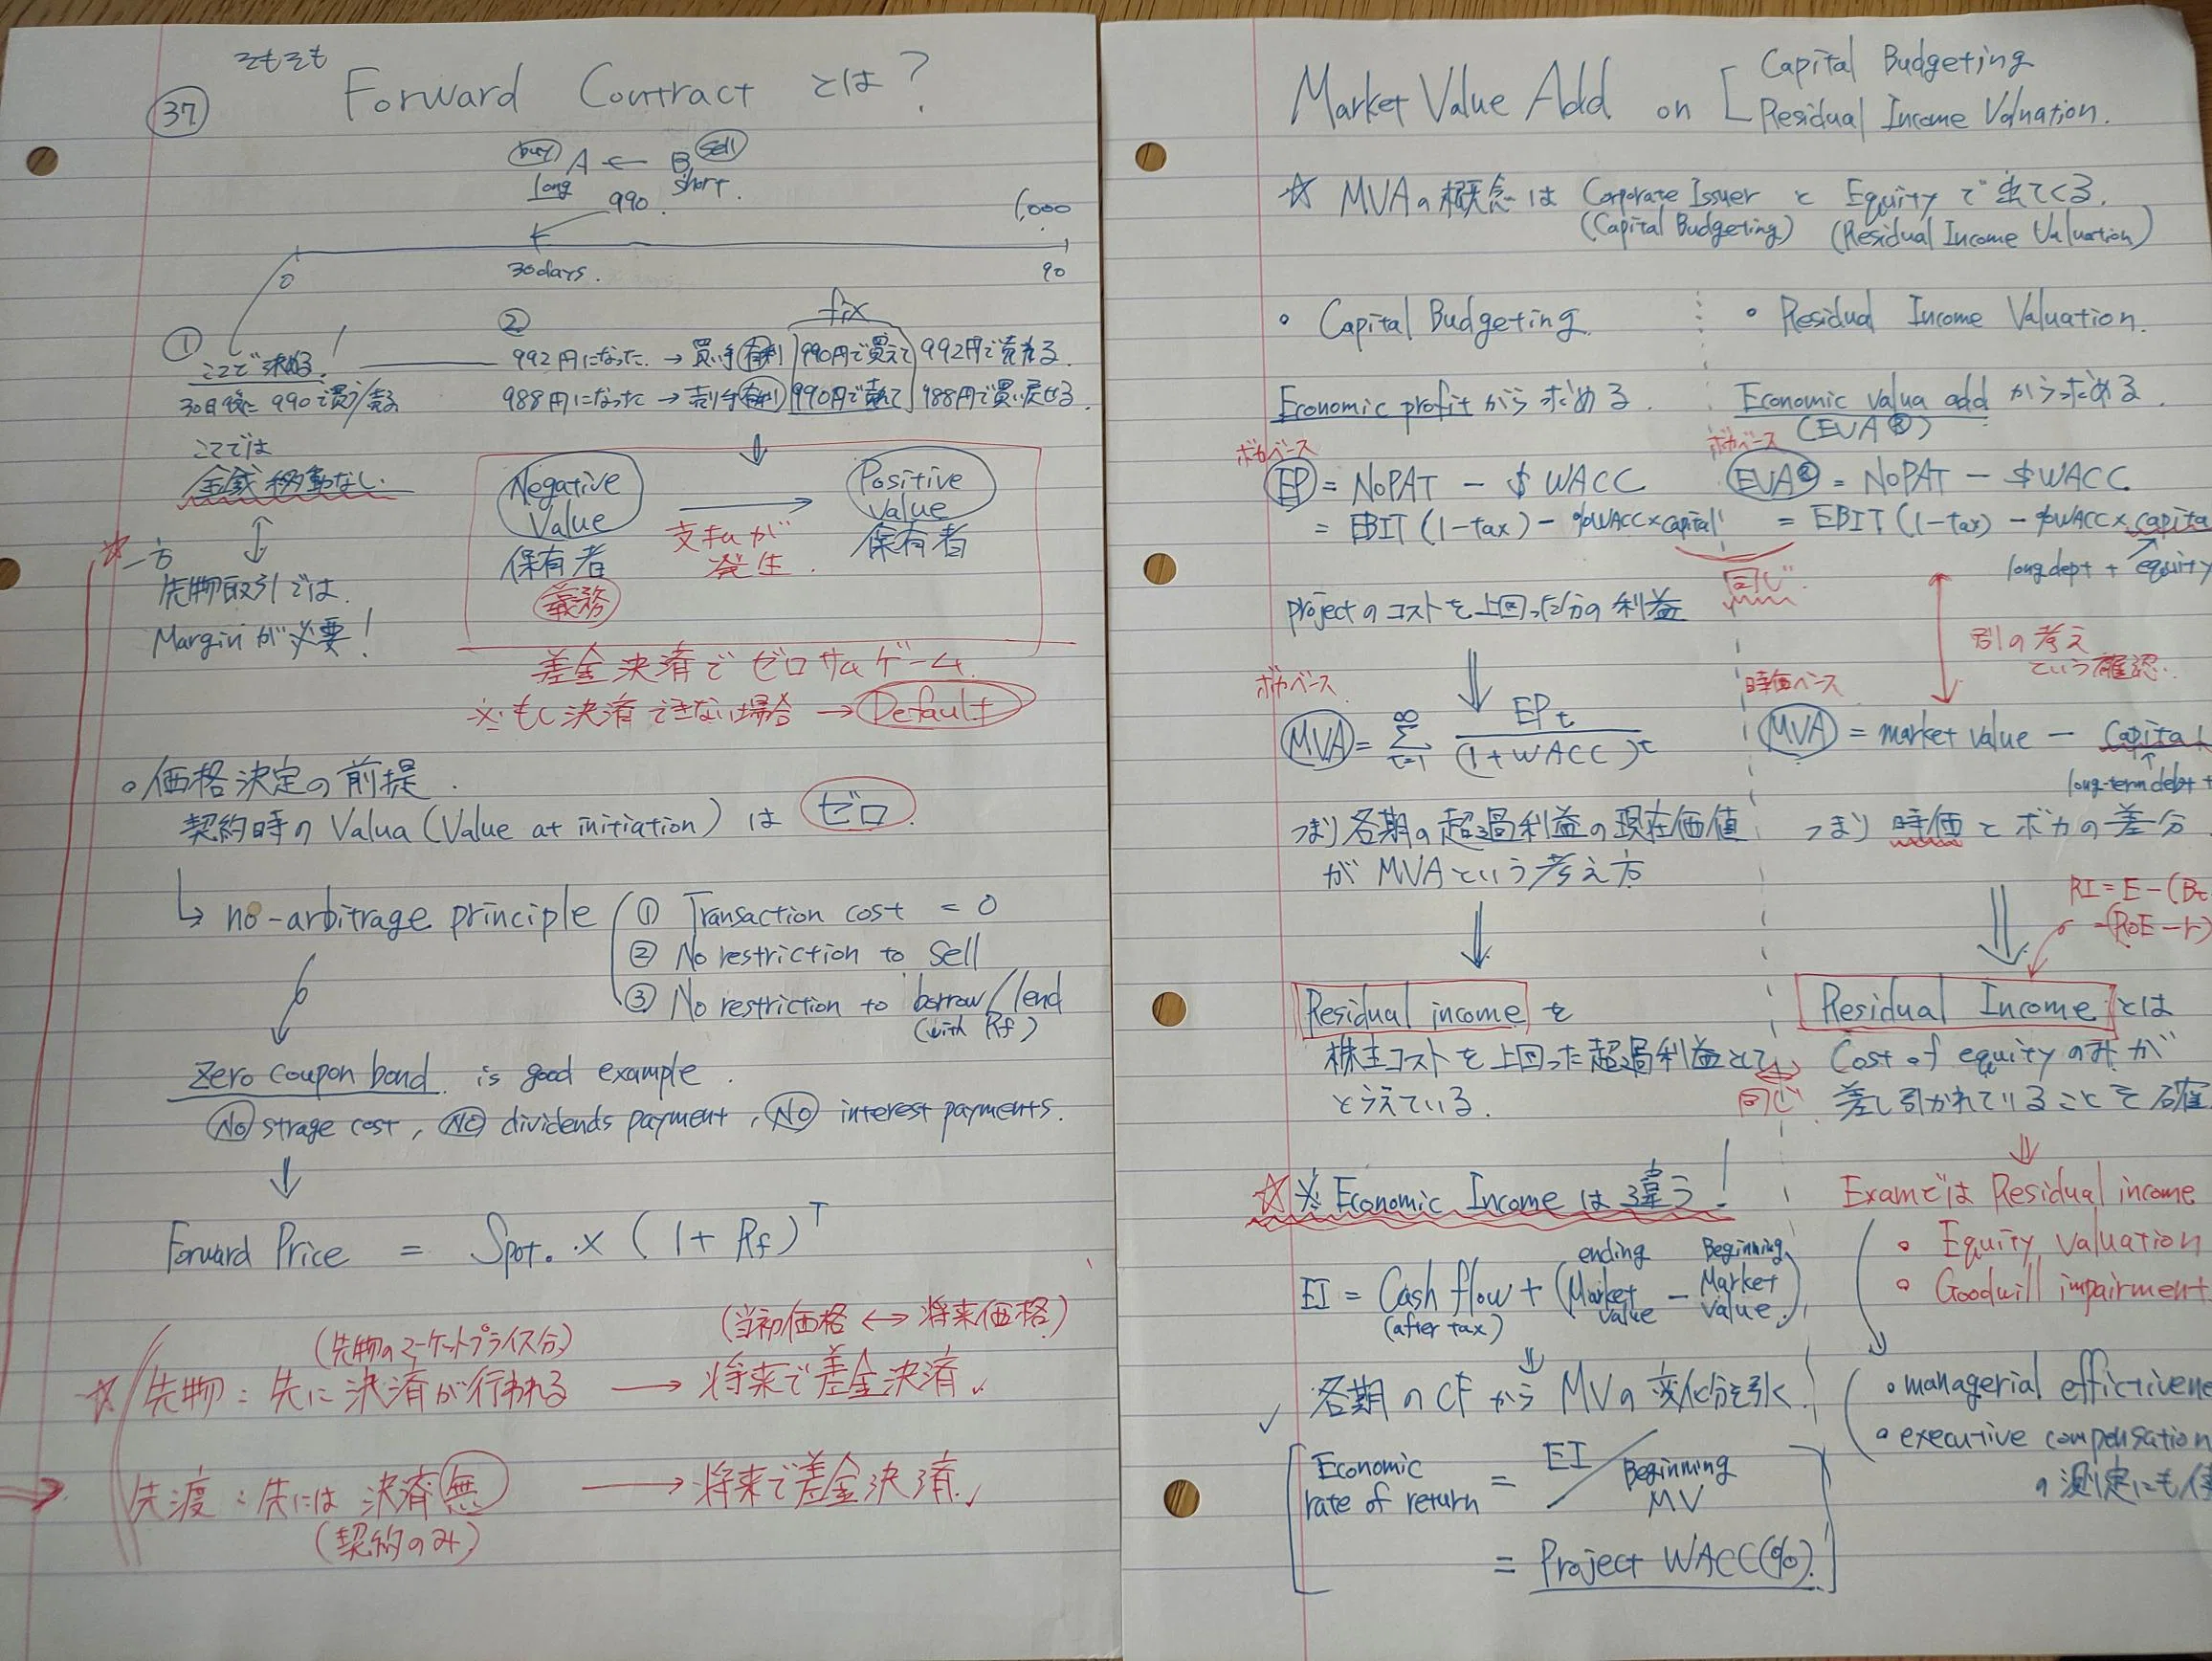 そもそも
㊲ Forward Contract とは？
buy A ← B sell
long short.
990.
1,000
0 30days. 90
① ② fix
ここで決める！
992円になった. → 買い手有利 990円で買えて 992円で売れる.
30日後に 990で買う/売る
988円になった → 売り手有利 990円で売れて 988円で買い戻せる.
ここでは
金銭移動なし.
↕
☆一方
先物取引では
Marginが必要！
Negative Value → Positive Value
保有者 支払が発生. 保有者
義務
差金決済でゼロサムゲーム.
※もし決済できない場合 → Default
○価格決定の前提.
契約時の Valua (Value at initiation) は ゼロ.
↳ no-arbitrage principle ① Transaction cost = 0
② No restriction to sell
③ No restriction to borrow/lend
(with Rf)
Zero coupon bond is good example.
No strage cost, No dividends payment, No interest payments.
↓
Forward Price = Spot. × (1+Rf)^T
(先物のマーケットプライス分) (当初価格 ↔ 将来価格)
☆ 先物：先に決済が行われる → 将来で差金決済✓
先渡：先には決済無 → 将来で差金決済.✓
(契約のみ)
Market Value Add on [ Capital Budgeting
Residual Income Valuation.
☆ MVAの概念は Corporate Issuer と Equity で出てくる.
(Capital Budgeting) (Residual Income Valuation)
○ Capital Budgeting.
Economic profitから求める.
ボカベース
EP = NOPAT - $WACC
= EBIT(1-tax) - %WACC×capital
projectのコストを上回った分の利益
⇓
ボカベース
MVA = Σ t=1 ∞ EPt / (1+WACC)^t
つまり各期の超過利益の現在価値
がMVAという考え方
⇓
Residual income を
株主コストを上回った超過利益として
とらえている.
☆※ Economic Income は違う！
EI = Cash flow + (ending Market value - Beginning Market value)
(after tax)
⇓
✓ 各期のCFからMVの変化分を引く.
Economic rate of return = EI / Beginning MV
= Project WACC(%)
○ Residual Income Valuation.
Economic valua addから求める.
(EVA®)
ボカベース
EVA® = NOPAT - $WACC.
= EBIT(1-tax) - %WACC×capita
long dept + equity
同じ.
別の考え
という確認.
時価ベース
MVA = market value - capital
long-term debt +
つまり 時価とボカの差分
RI = E - (Bt
= (ROE - r)
Residual Income とは
Cost of equityのみが
同じ 差し引かれていることを確
⇓
Examでは Residual income
○ Equity valuation
○ Goodwill impairment.
○ managerial effictivene
○ executive compensation
の測定にも使